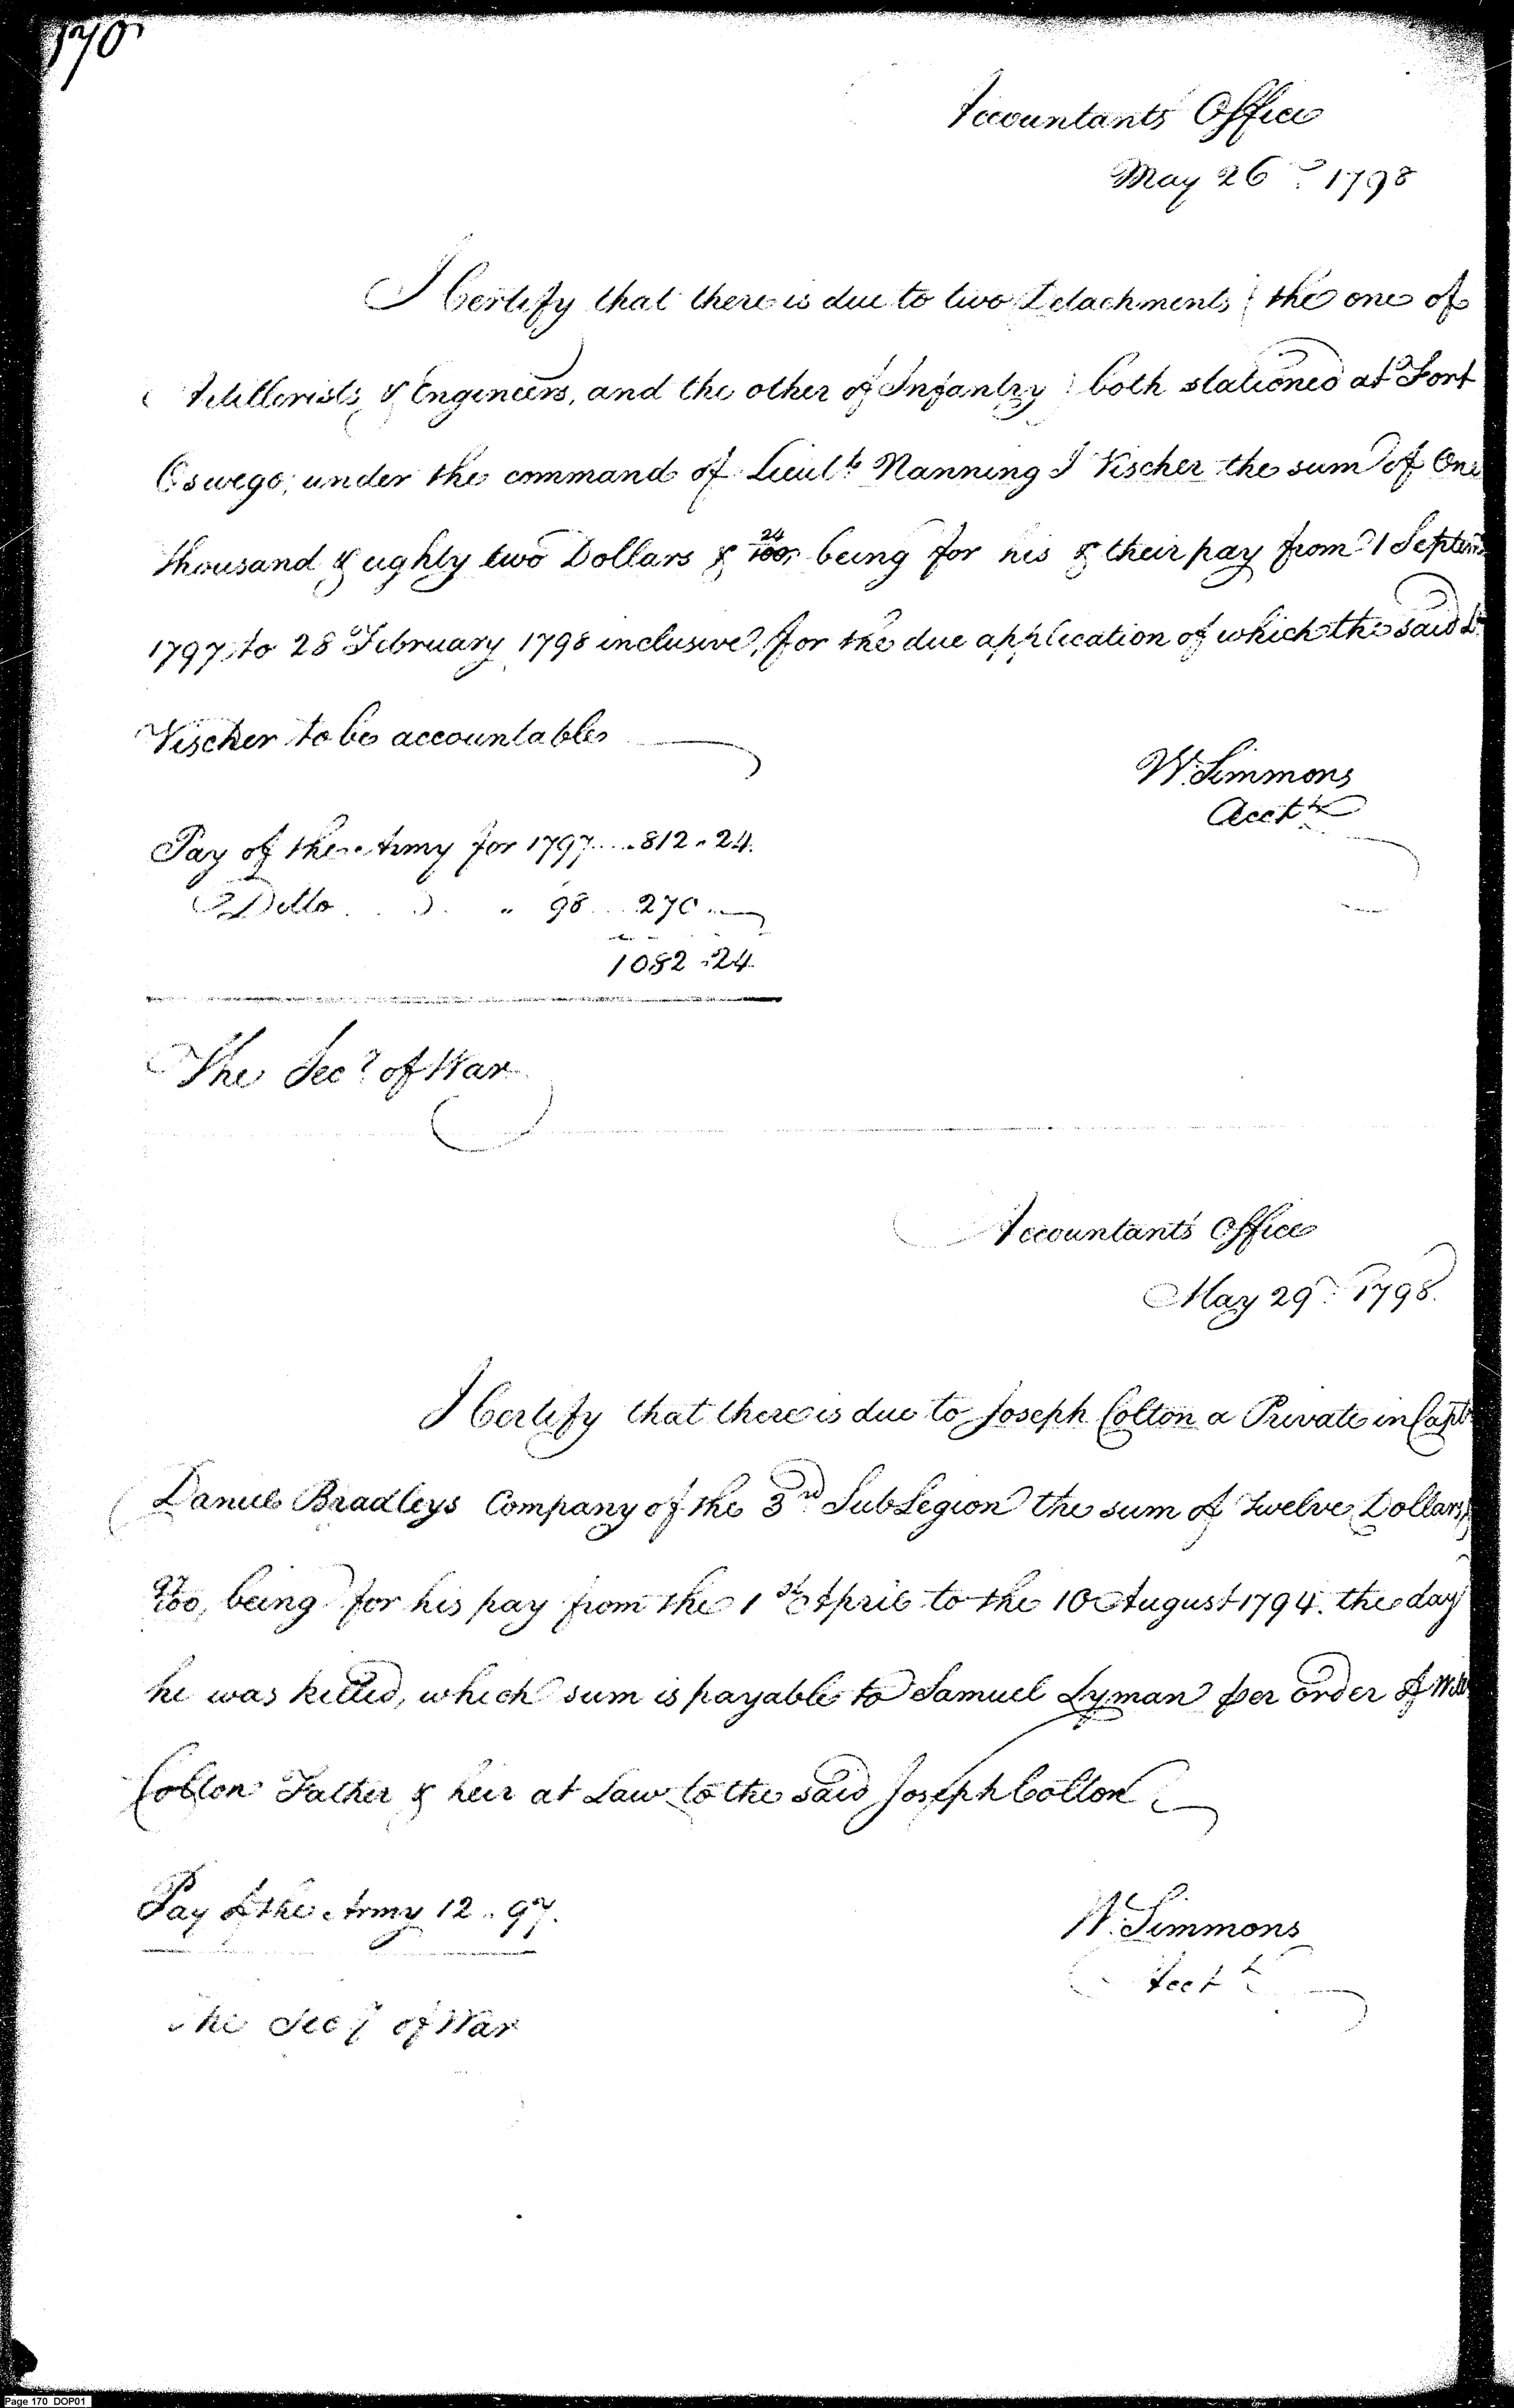 170
Accountants Office
May 26th 1798
I Certify that there is due to two Detachments; the one of
Artillerists & Engineers, and the other of Infantry; both stationed at Fort
Oswego, under the command of Lieut. Nanning I Vischer the sum of One
thousand & eighty two Dollars & 24/100, being for his & their pay from 1 Septem
1797 to 28 February 1798 inclusive, for the due application of which the said Lt
Vischer to be accountable
W. Simmons
Acctt
Pay of the Army for 1797....812.24.
Ditto . . . " 98...270."
1082.24
The Secy of War
Accountants Office
May 29th 1798.
I Certify that there is due to Joseph Colton a Private in Capt
Daniel Bradleys Company of the 3rd Sub Legion the sum of twelve Dollars &
97/100, being for his pay from the 1st April to the 10 August 1794. the day
he was killed, which sum is payable to Samuel Lyman per order of Wm
Colton Father & heir at Law to the said Joseph Colton
Pay of the Army 12..97.
W. Simmons
Acctt
The Secy of War
Page 170 DOP01